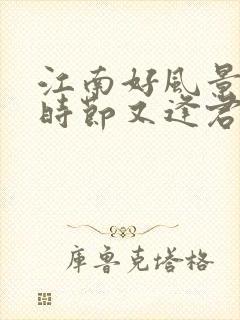 江南好風景
時節又逢君
庫魯克塔格